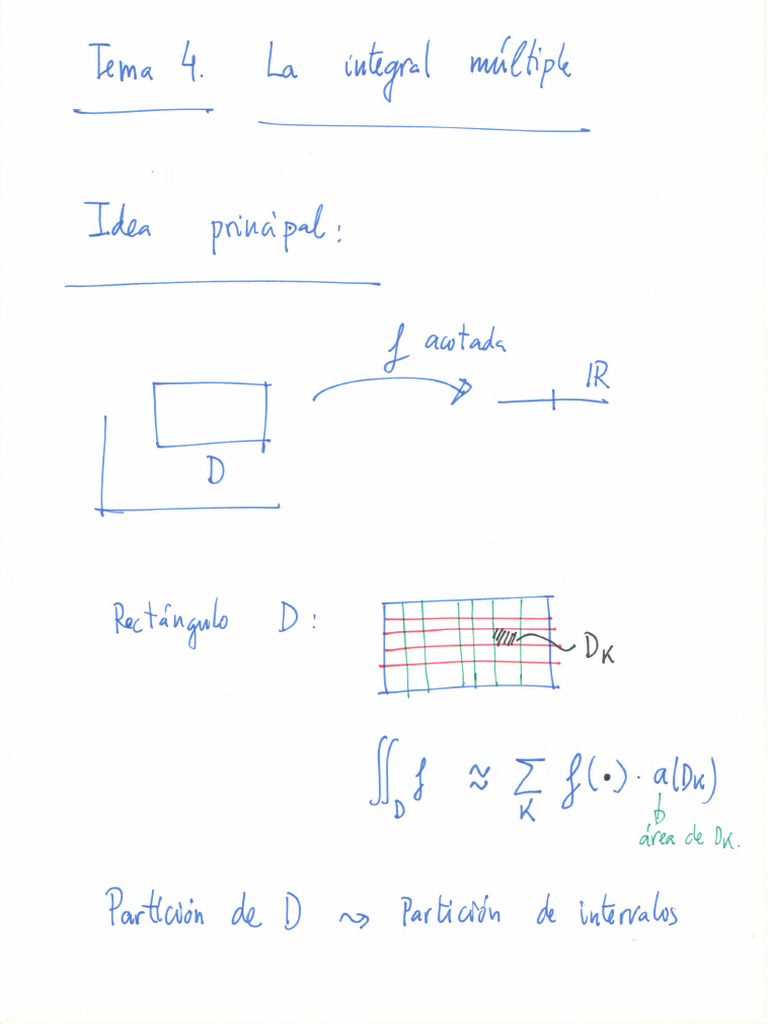 Tema 4. La integral múltiple
Idea principal:
f acotada
ℝ
D
Rectángulo D:
D_K
∬_D f ≈ ∑_K f(•) · a(D_K)
área de D_K.
Partición de D ⇝ Partición de intervalos